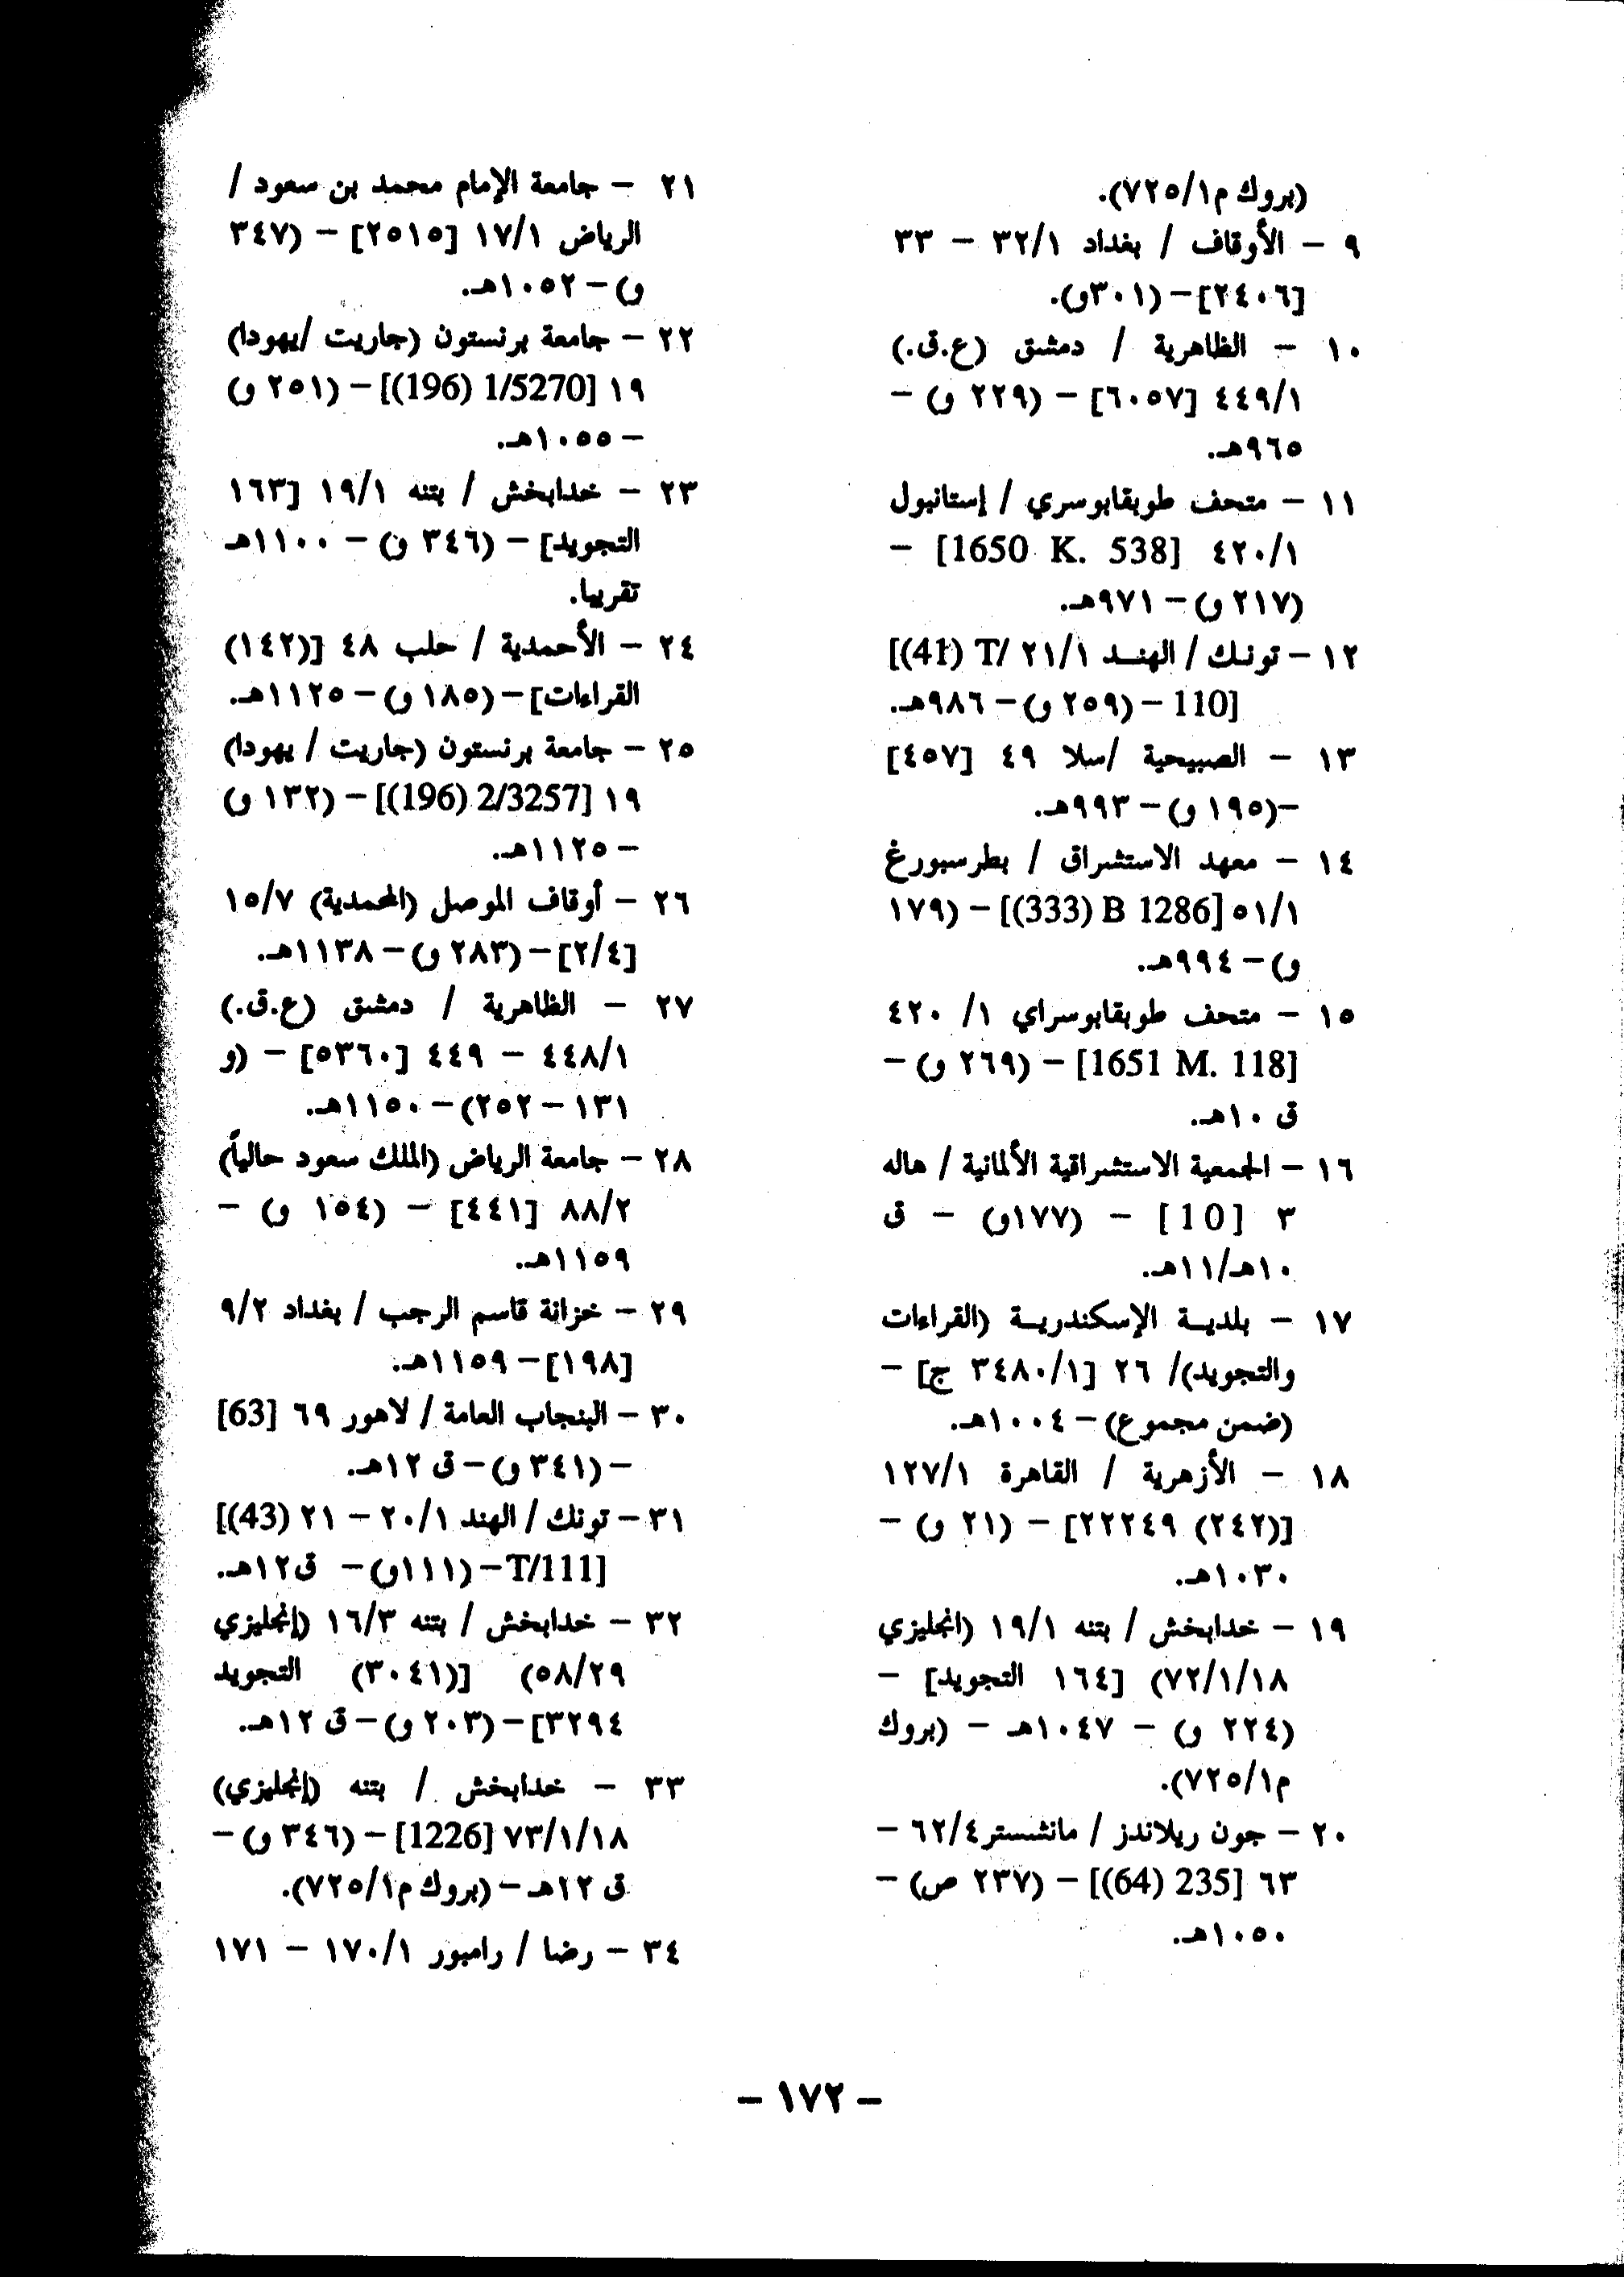 (بروك م٧٢٥/١).
٩ – الأوقاف / بغداد ٣٢/١ – ٣٣
[٢٤٠٦] – (٣٠١و).
١٠ – الظاهرية / دمشق (ع.ق.)
٤٤٩/١ [٦٠٥٧] – (٢٢٩ و) –
٩٦٥هـ.
١١ – متحف طوبقابوسري / إستانبول
٤٢٠/١ [1650 K. 538] –
(٢١٧ و) – ٩٧١هـ.
١٢ – تونك / الهند ٢١/١ T/ (41)]
[110 – (٢٥٩ و) – ٩٨٦هـ.
١٣ – الصبيحية /سلا ٤٩ [٤٥٧]
–(١٩٥ و) – ٩٩٣هـ.
١٤ – معهد الاستشراق / بطرسبورغ
٥١/١ [(333) B 1286] – (١٧٩
و) – ٩٩٤هـ.
١٥ – متحف طوبقابوسراي ١/ ٤٢٠
[1651 M. 118] – (٢٦٩ و) –
ق ١٠هـ.
١٦ – الجمعية الاستشراقية الألمانية / هاله
٣ [10] – (١٧٧و) – ق
١٠هـ/١١هـ.
١٧ – بلدية الإسكندرية (القراءات
والتجويد)/ ٢٦ [٣٤٨٠/١ ج] –
(ضمن مجموع) – ١٠٠٤هـ.
١٨ – الأزهرية / القاهرة ١٢٧/١
[(٢٤٢) ٢٢٢٤٩] – (٢١ و) –
١٠٣٠هـ.
١٩ – خدابخش / بتنه ١٩/١ (انجليزي
٧٢/١/١٨) [١٦٤ التجويد] –
(٢٢٤ و) – ١٠٤٧هـ – (بروك
م٧٢٥/١).
٢٠ – جون ريلاندز / مانشستر٦٢/٤ –
٦٣ [235 (64)] – (٢٣٧ ص) –
١٠٥٠هـ.
٢١ – جامعة الإمام محمد بن سعود /
الرياض ١٧/١ [٢٥١٥] – (٣٤٧
و) – ١٠٥٢هـ.
٢٢ – جامعة برنستون (جاريت /يهودا)
١٩ [(196) 1/5270] – (٢٥١ و)
– ١٠٥٥هـ.
٢٣ – خدابخش / بتنه ١٩/١ [١٦٣
التجويد] – (٣٤٦ ن) – ١١٠٠هـ
تقريبا.
٢٤ – الأحمدية / حلب ٤٨ [(١٤٢)
القراءات] – (١٨٥ و) – ١١٢٥هـ.
٢٥ – جامعة برنستون (جاريت / يهودا)
١٩ [(196) 2/3257] – (١٣٢ و)
– ١١٢٥هـ.
٢٦ – أوقاف الموصل (المحمدية) ١٥/٧
[٢/٤] – (٢٨٣ و) – ١١٣٨هـ.
٢٧ – الظاهرية / دمشق (ع.ق.)
٤٤٨/١ – ٤٤٩ [٥٣٦٠] – (و
١٣١ – ٢٥٢) – ١١٥٠هـ.
٢٨ – جامعة الرياض (الملك سعود حالياً)
٨٨/٢ [٤٤١] – (١٥٤ و) –
١١٥٩هـ.
٢٩ – خزانة قاسم الرجب / بغداد ٩/٢
[١٩٨] – ١١٥٩هـ.
٣٠ – البنجاب العامة / لاهور ٦٩ [63]
– (٣٤١ و) – ق ١٢هـ.
٣١ – تونك / الهند ٢٠/١ – ٢١ (43)]
[T/111 – (١١١و) – ق١٢هـ.
٣٢ – خدابخش / بتنه ١٦/٣ (إنجليزي
٥٨/٢٩) [(٣٠٤١) التجويد
٣٢٩٤] – (٢٠٣ و) – ق ١٢هـ.
٣٣ – خدابخش / بتنه (إنجليزي)
٧٣/١/١٨ [1226] – (٣٤٦ و) –
ق ١٢هـ – (بروك م٧٢٥/١).
٣٤ – رضا / رامبور ١٧٠/١ – ١٧١
– ١٧٢ –